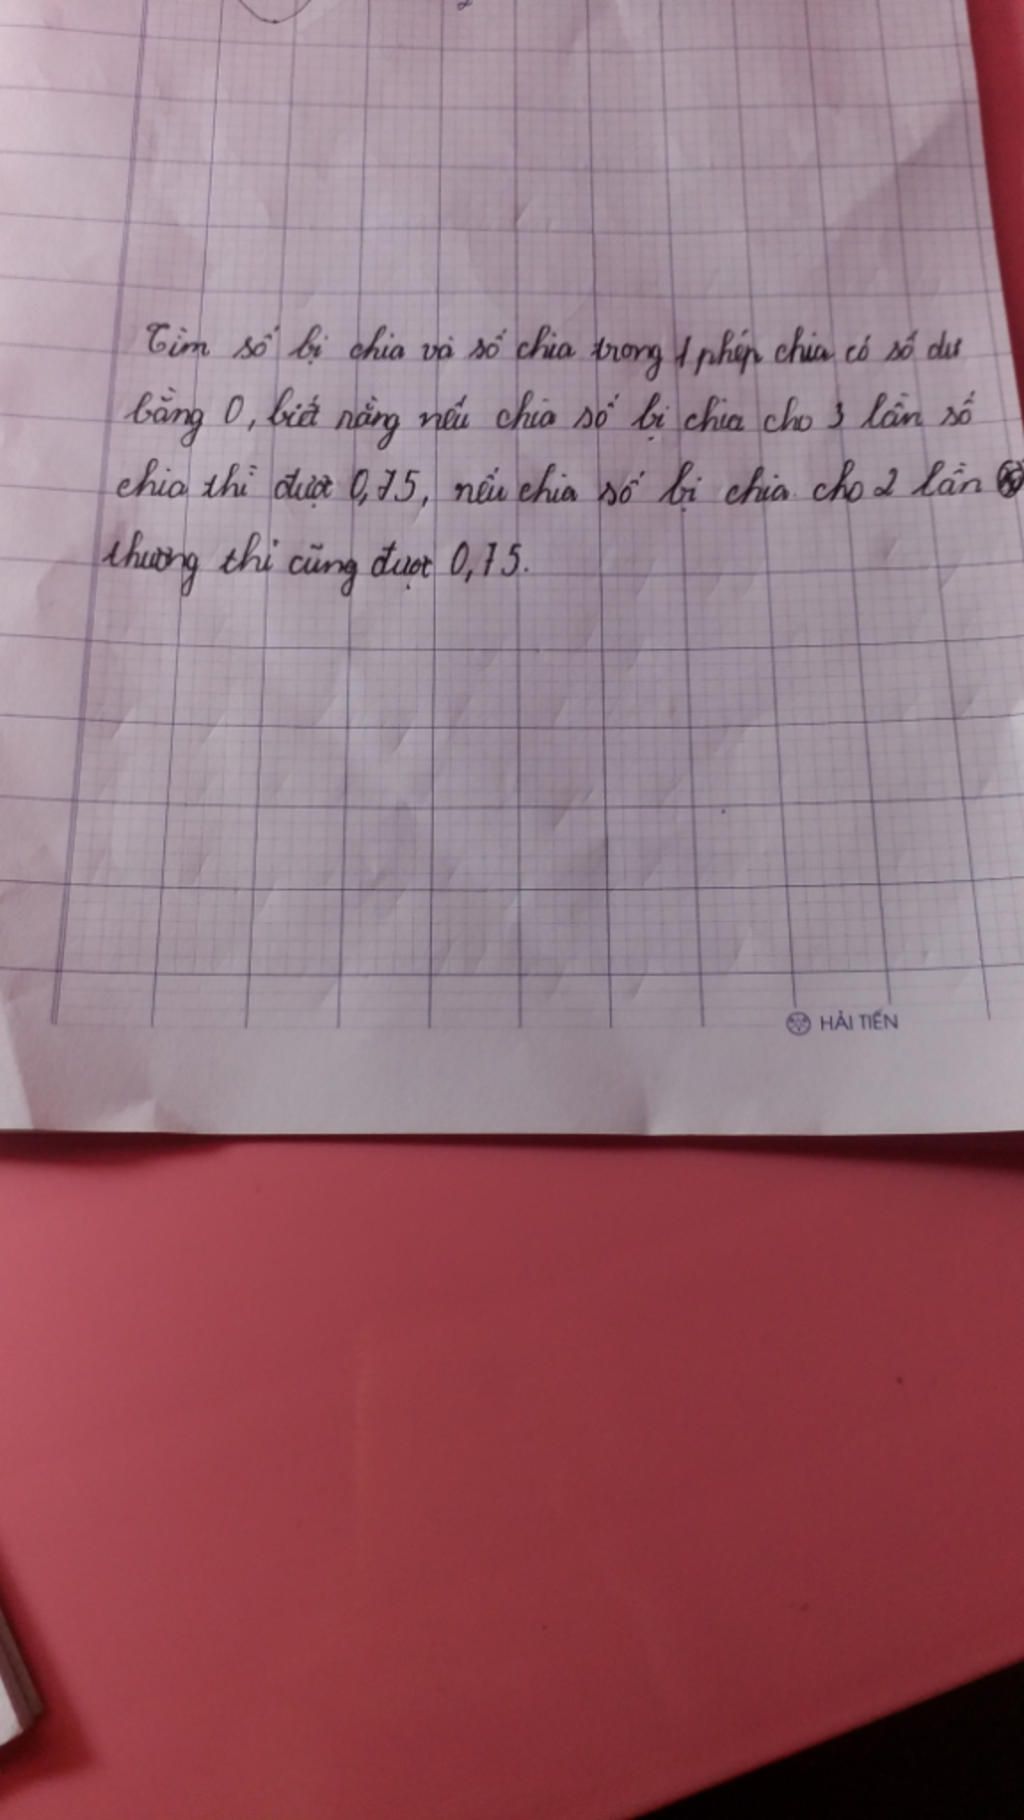 Tìm số bị chia và số chia trong 1 phép chia có số dư
bằng 0, biết rằng nếu chia số bị chia cho 3 lần số
chia thì được 0,75, nếu chia số bị chia cho 2 lần
thương thì cũng được 0,75.
HẢI TIẾN